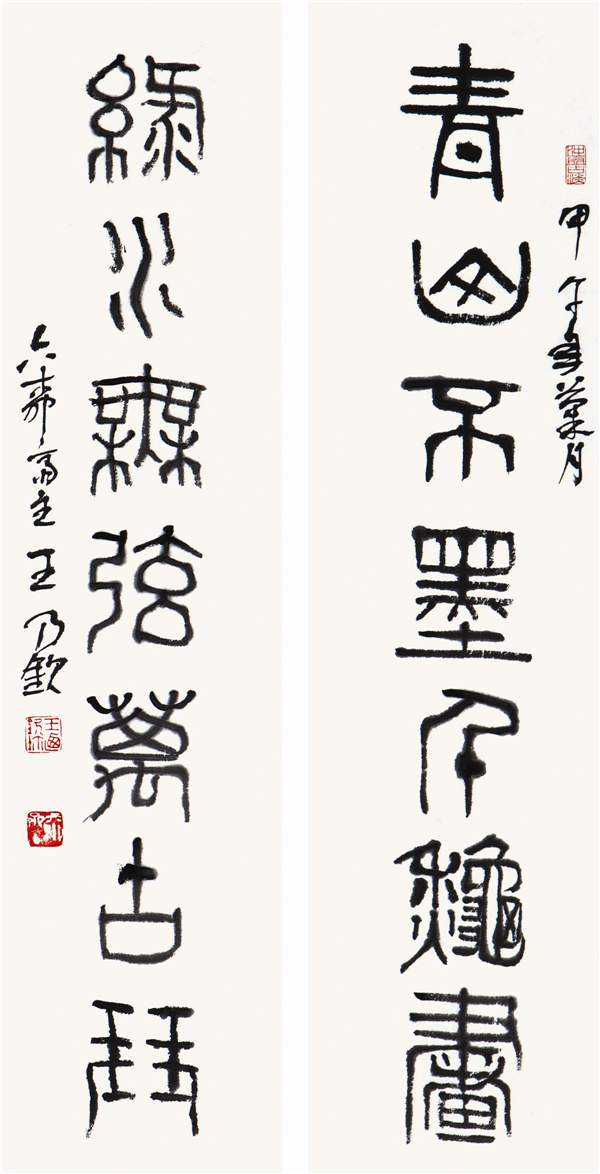 青山不墨千龝畫
甲午年菊月
綠水無弦萬古琴
六齋主王乃欽